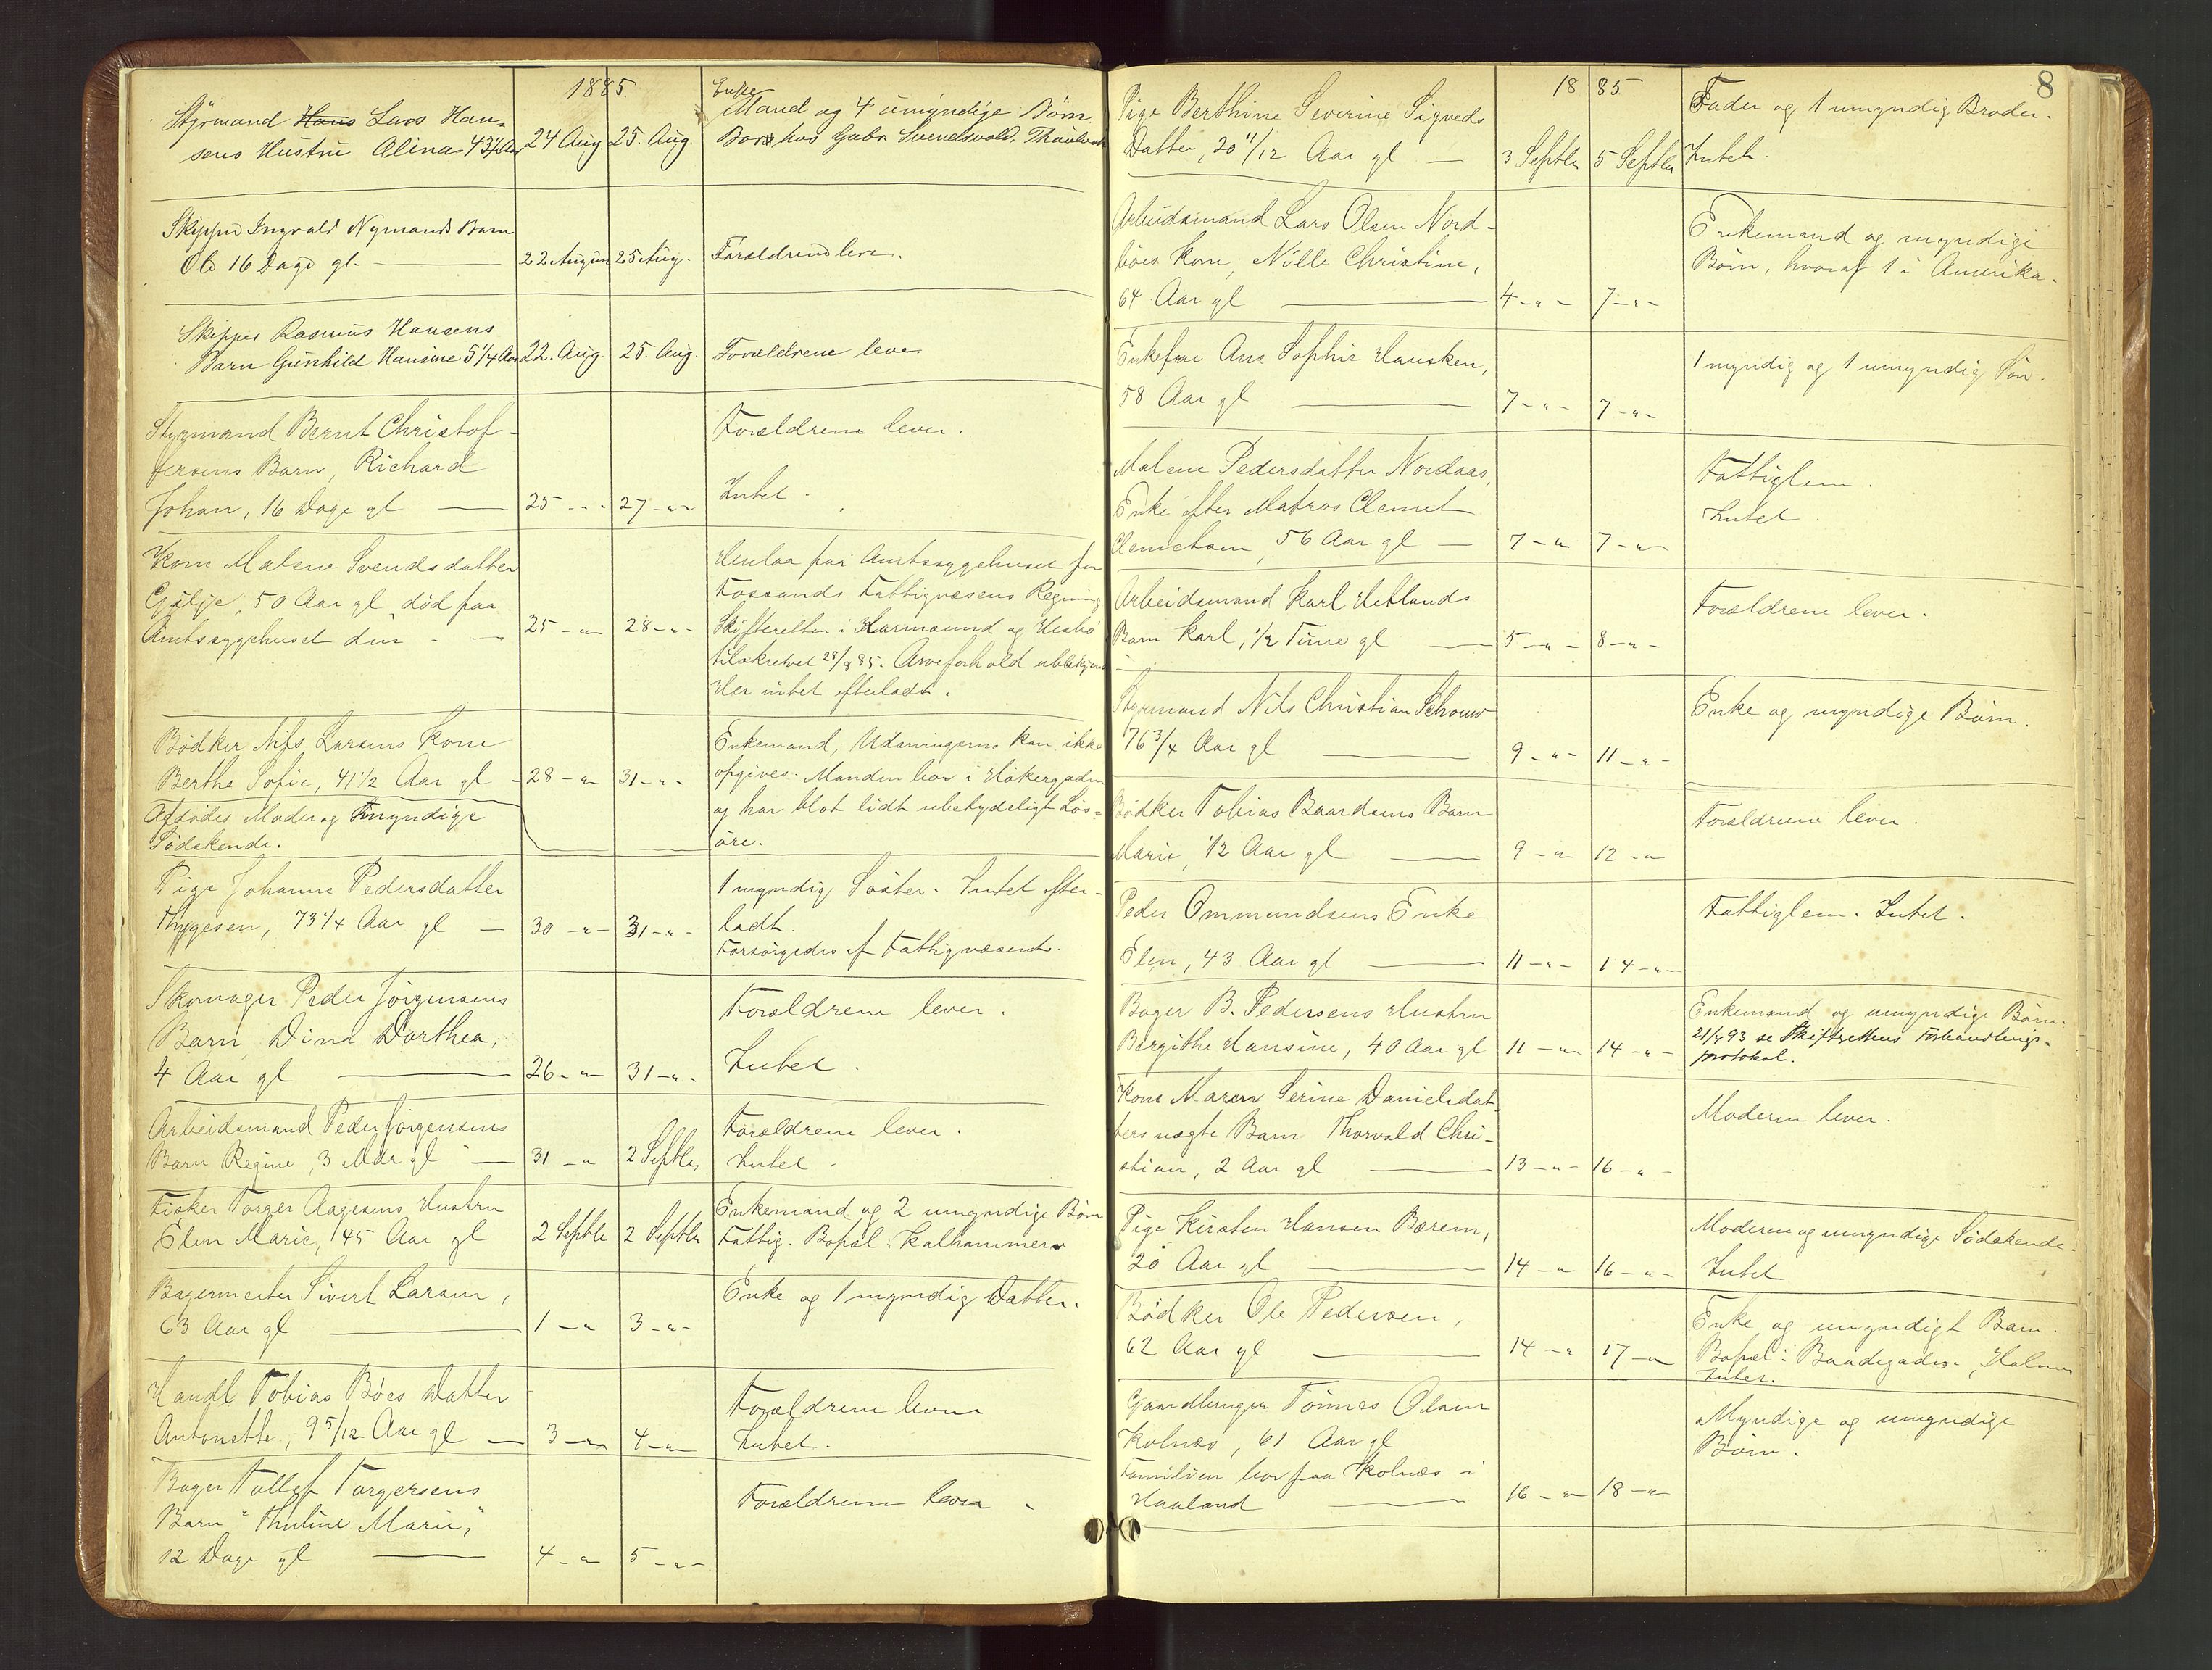 1885.
Styrmand Hans Lars Han-
sens Hustru Olina 43¼ Aar
24 Aug. 25. Aug.
Enke
Mand og 4 umyndige Børn.
Bor hos Gabr. Svendsvold,
Skipper Ingvald Nymands Barn
Ole 16 Dage gl.
22 August 25 Aug.
Forældrene leve.
Skipper Rasmus Hansens
Barn Gunhild Hansine 5¼ Aar
22. Aug. 25. Aug.
Forældrene lever
Styrmand Bernt Christof-
fersens Barn, Richard
Johan, 16 Dage gl
25 - " - 27 - " -
Forældrene lever.
Intet.
Kone Malene Svendsdatter
Gilje, 50 Aar gl, død paa
Amtssygehuset den
25 - " 28 - " -
Henlaa paa Amtssygehuset for
Fossands Fattigvæsens Regning
Skifteretten i Karmsund og Hesbø
tilskrevet 28/8 85. Arveforhold ubekjendt
Her intet efterladt.
Bødker Nils Larsens Kone
Berthe Sofie, 41½ Aar gl
28 - " 31 - " -
Enkemand, Udarvingerne kan ikke
opgives. Manden bor i Høkergaden
og har blot lidt ubetydeligt Løs-
øre.
Afdødes Moder og myndige
Sødskende.
Pige Johanne Pedersdatter
Thygesen, 73¼ Aar gl
30 - " - 31 - " -
1 myndig Søster. Intet efter-
ladt.
Forsørgedes af Fattigvæsenet.
Skomager Peder Jørgensens
Barn Dina Dorthea,
4 Aar gl
26 - " 31 - " -
Forældrene lever.
Intet.
Arbeidsmand Peder Jørgensens
Barn Regine, 3 Mdr gl
31 - " 2 Septbr
Forældrene lever.
Intet.
Fisker Torger Aagesens Hustru
Elen Marie, 45 Aar gl
2 Septbr 2 Septbr
Enkemand og 2 umyndige Børn
Fattig. Bopæl: Kalhammern
Bagermester Sivert Larsen,
63 Aar gl
1 - " 3 - " -
Enke og 1 myndig Datter.
Handl Tobias Bøes Datter
Antonette, 9 5/12 Aar gl
3 - " 4 - "
Forældrene lever
Intet.
Bager Tollef Torgersens
Barn "Thuline Marie",
12 Dage gl
4 - " 5 - " -
Forældrene lever.
8
1885
Pige Berthine Severine Sigveds
Datter, 20 11/12 Aar gl
3 Septbr 5 Septbr
Fader og 1 umyndig Broder.
Intet.
Arbeidsmand Lars Olsen Nord-
bøes Kone, Nille Christine,
64 Aar gl
4 - " - 7 - " -
Enkemand og myndige
Børn, hvoraf 1 i Amerika.
Enkefrue Ane Sophie Hausken,
58 Aar gl
7 - " - 7 - " -
1 myndig og 1 umyndig Søn.
Malene Pedersdatter Nordaas,
Enke efter Matros Clemet
Clemetsen, 56 Aar gl
7 - " 7 - " -
Fattiglem.
Intet
Arbeidsmand Karl Hetlands
Barn Karl, ½ Time gl
5 - " - 8 - " -
Forældrene lever.
Styrmand Nils Christian Schouw
76¾ Aar gl
9 - " - 11 - " -
Enke og myndige Børn.
Bødker Tobias Baardsens Barn
Marie, ½ Aar gl
9 - " 12 - "
Forældrene lever.
Peder Ommundsens Enke
Elen, 43 Aar gl
11 - " - 14 - " -
Fattiglem. Intet.
Bager B. Pedersens Hustru
Bergithe Hansine, 40 Aar gl
11 - " 14 - " -
Enkemand og umyndige Børn.
21/4 93 se Skifterettens Forhandlings-
protokol.
Kone Maren Serine Danielsdat-
ters uægte Barn Thorvald Chri-
stian, 2 Aar gl
13 - " - 16 - " -
Moderen lever.
Pige Kirsten Hansen Bærem,
20 Aar gl
14 - " 16 - " -
Moderen og umyndige Sødskende.
Intet
Bødker Ole Pedersen,
62 Aar gl
14 - " 17 - "
Enke og umyndigt Barn.
Bopæl: Baadegaden, Holmen
Intet.
Gaardbruger Tønnes Olsen
Kolnes, 61 Aar gl
Familien bor paa Kolnes i
Haaland
16 - " 18 - "
Myndige og umyndige
Børn.